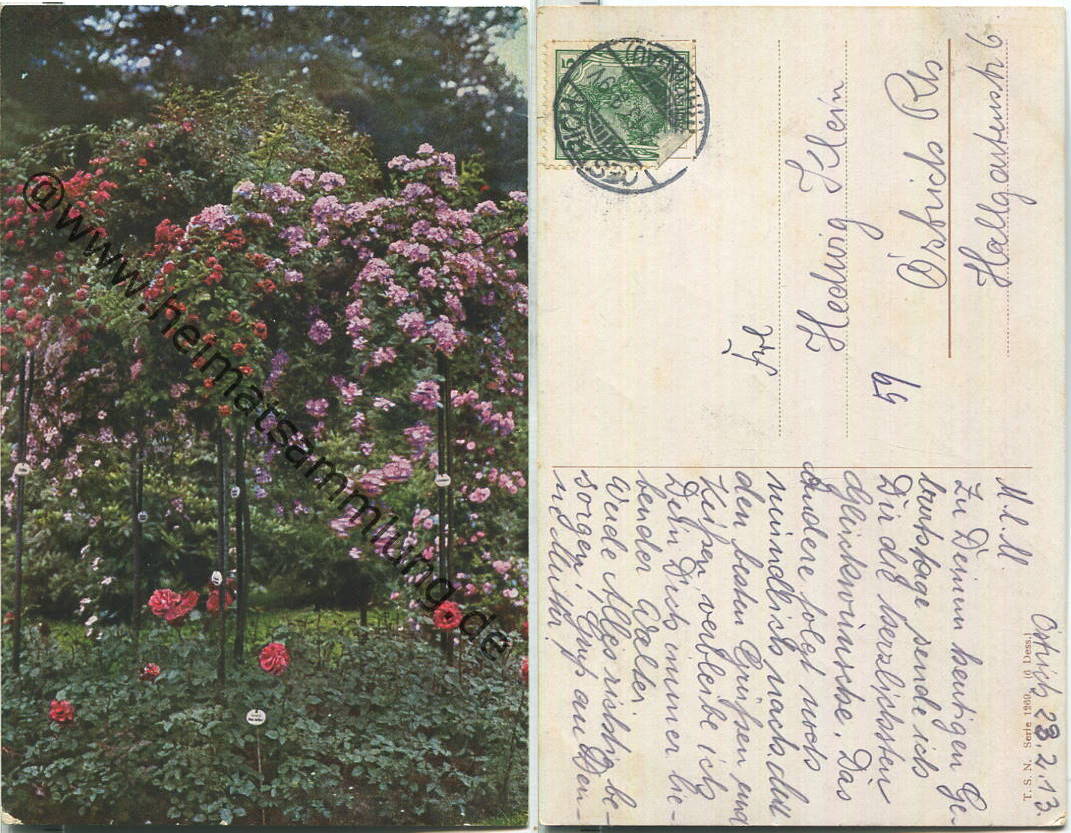 @www.heimatsammlung.de
Frl
Hedwig Klein
Östrich Rh
Hallgartenstr 6
Östrich, 28.2.13.
M. l. M.
Zu Deinem heutigen Ge-
burtstage sende ich
Dir die herzlichsten
Glückwünsche. Das
Andere folgt noch
mündlich nach. Mit
den besten Grüßen und
Küßen verbleibe ich
Dein Dich immer lie-
bender Walter.
Werde Alles richtig be-
sorgen. Gruß an Den-
T. S. N. Serie 1260 (6 Dess.)